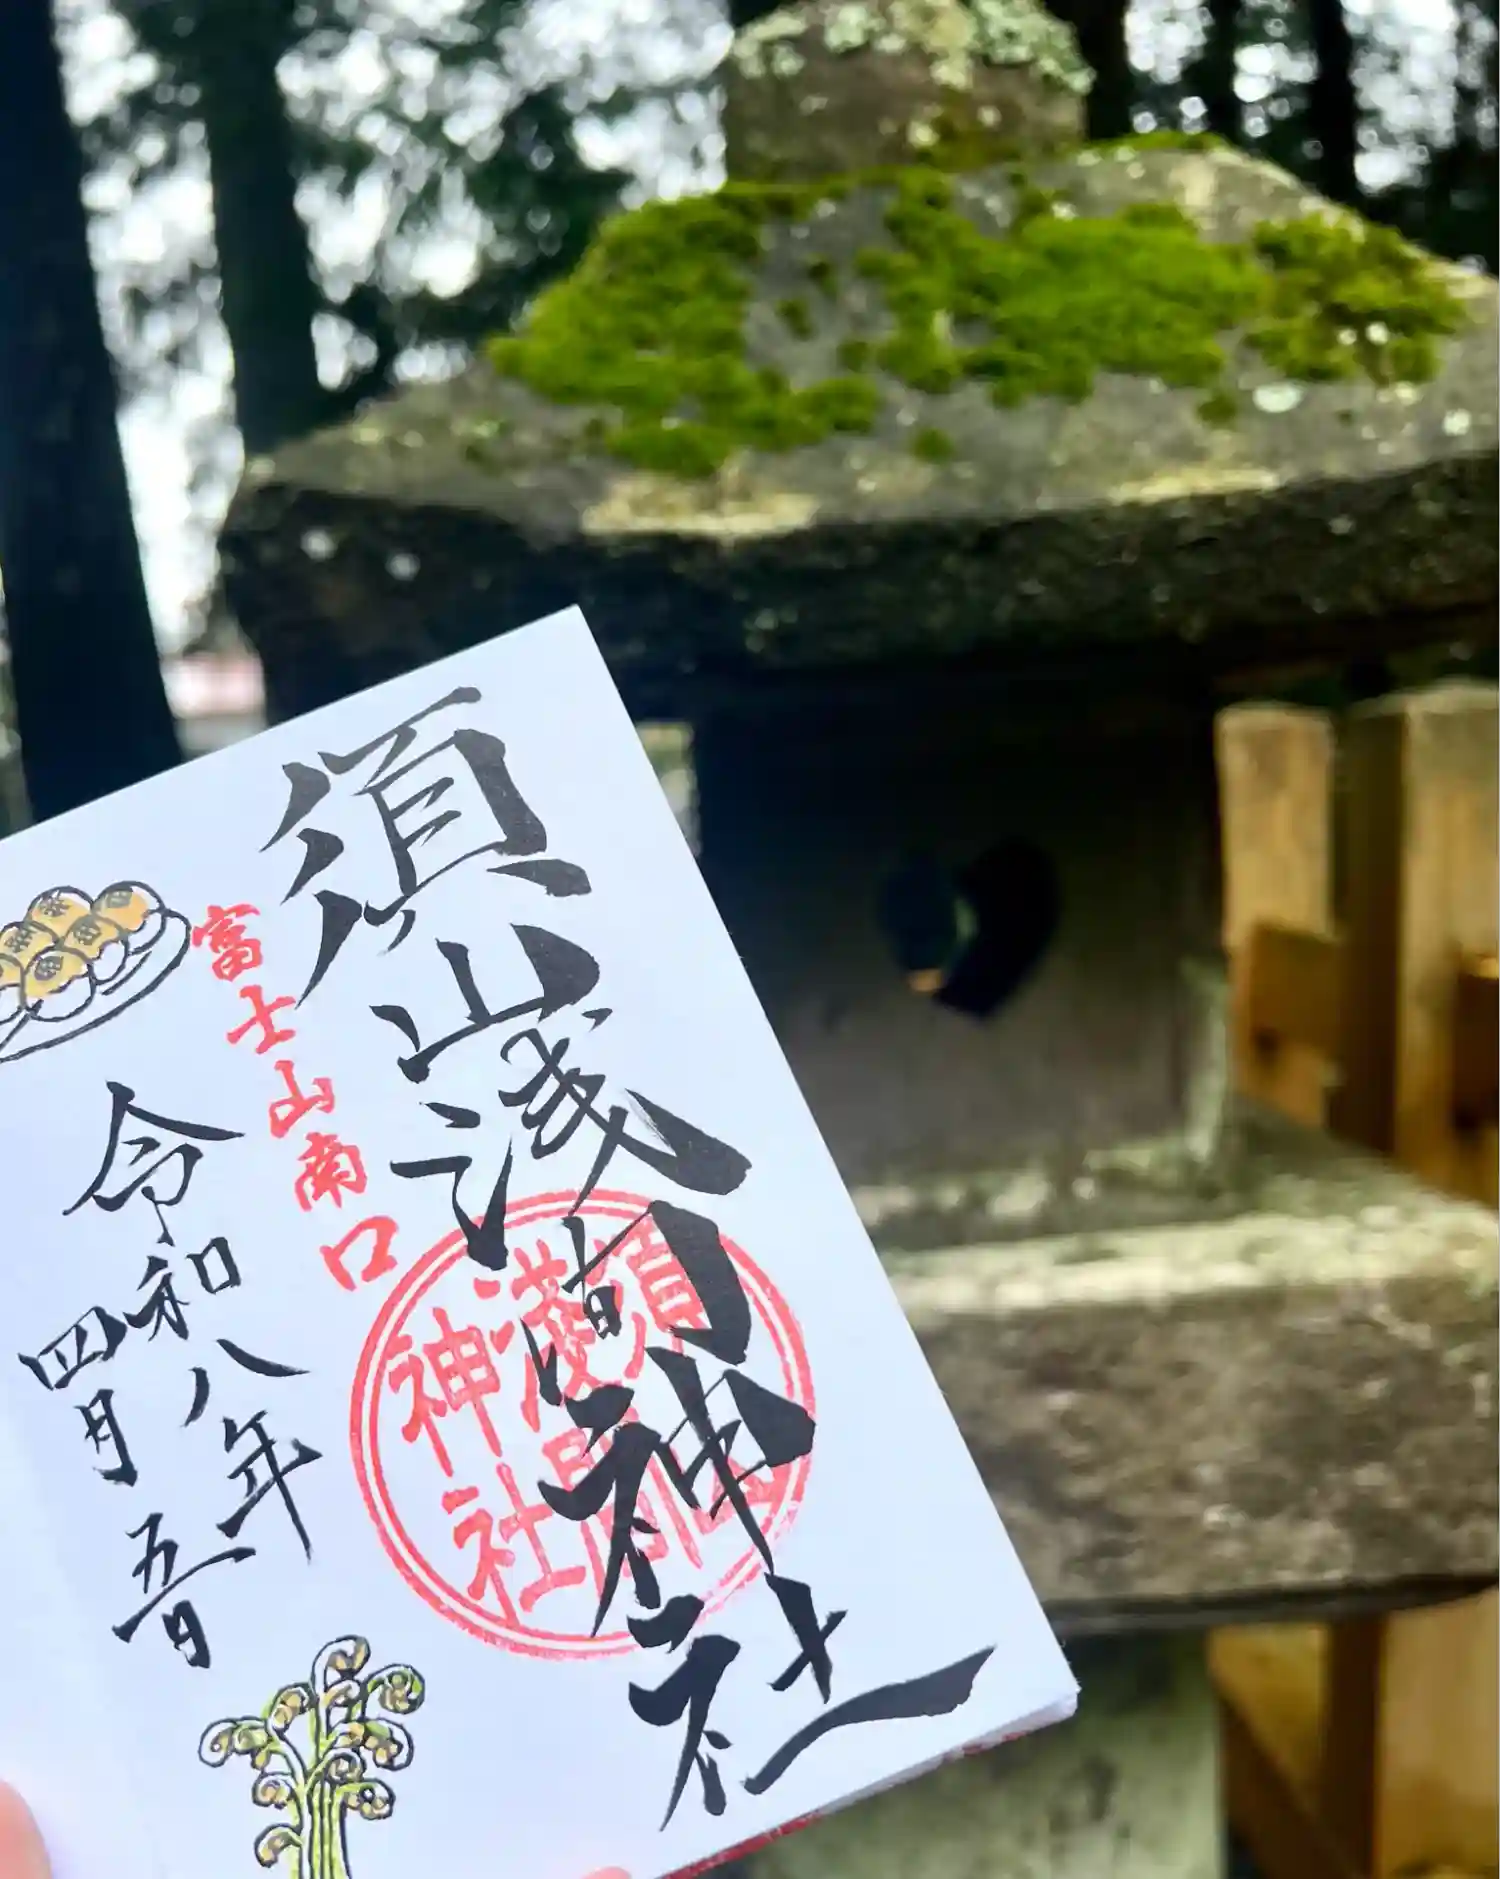 須山浅間神社
富士山南口
須山
淺間
神社
令和八年
四月五日